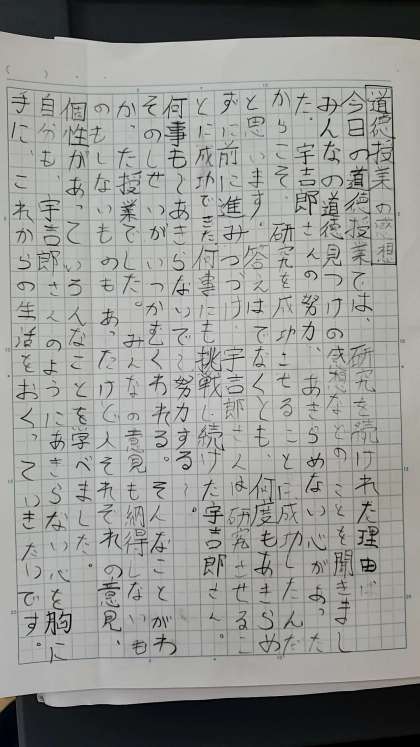 道徳授業の感想
今日の道徳授業では、研究を続けれた理由は
みんなの道徳見つけの感想などのことを聞きまし
た。宇吉郎さんの努力、あきらめない心があった
からこそ、研究を成功させることに成功したんだ
と思います。答えはでなくとも、何度もあきらめ
ずに前に進みつづけ、宇吉郎さんは研究させるこ
とに成功できた。何事にも挑戦し続けた宇吉郎さん。
何事も〜あきらないで〜努力する〜。
そのしせいがいつかむくわれる。そんなことがわ
か、た授業でした。みんなの意見も納得しないも
のもしないものもあったけど人それぞれの意見、
個性があっていろんなことを学べました。
自分も、宇吉郎さんのようにあきらない心を胸に
手に、これからの生活をおくっていきたいです。